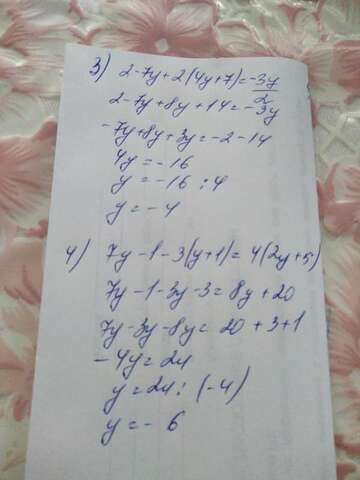 3) 2-7y+2(4y+7)=-3y
2-7y+8y+14=-3y
-7y+8y+3y=-2-14
4y=-16
y=-16:4
y=-4
4) 7y-1-3(y+1)=4(2y+5)
7y-1-3y-3=8y+20
7y-3y-8y=20+3+1
-4y=24
y=24:(-4)
y=-6